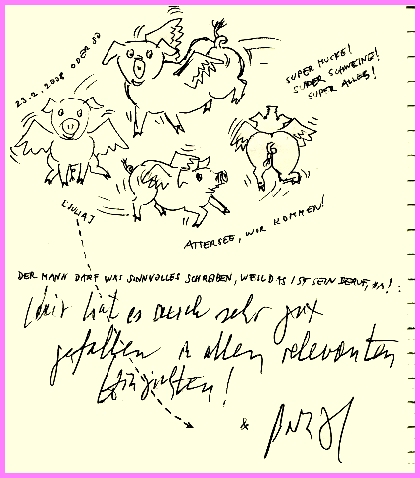 23.2.2008 ODER SO
SUPER MUCKE!
SUPER SCHWEINE!
SUPER ALLES!
[JULIA]
ATTERSEE, WIR KOMMEN!
DER MANN DARF WAS SINNVOLLES SCHREIBEN, WEIL DAS IST SEIN BERUF, HA!:
Mir hat es auch sehr gut
gefallen in allen relevanten
!
&